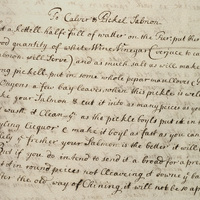 To Calver & Pickel Salmon
a Kettell halfe full of watter on the fier, put ther
good quantity of white Wine Vinegar (verjuce to ca
Salmon will Serve) and as much salt as will make
ing pickell. put in some whole peper
a few bay leaves. when this pickle is well
your Salmon & cut it into as many pieces as you
wash it Clean & as the pickle boyls put it in
yling Lequor & make it boyl as fast as you can
ly ye fresher your Salmon is the better it will
But if you do intend to send it a brode for a pre
it in round pieces not Cleaving it downe ye b
ter the old way of Chining, it will not be so ap